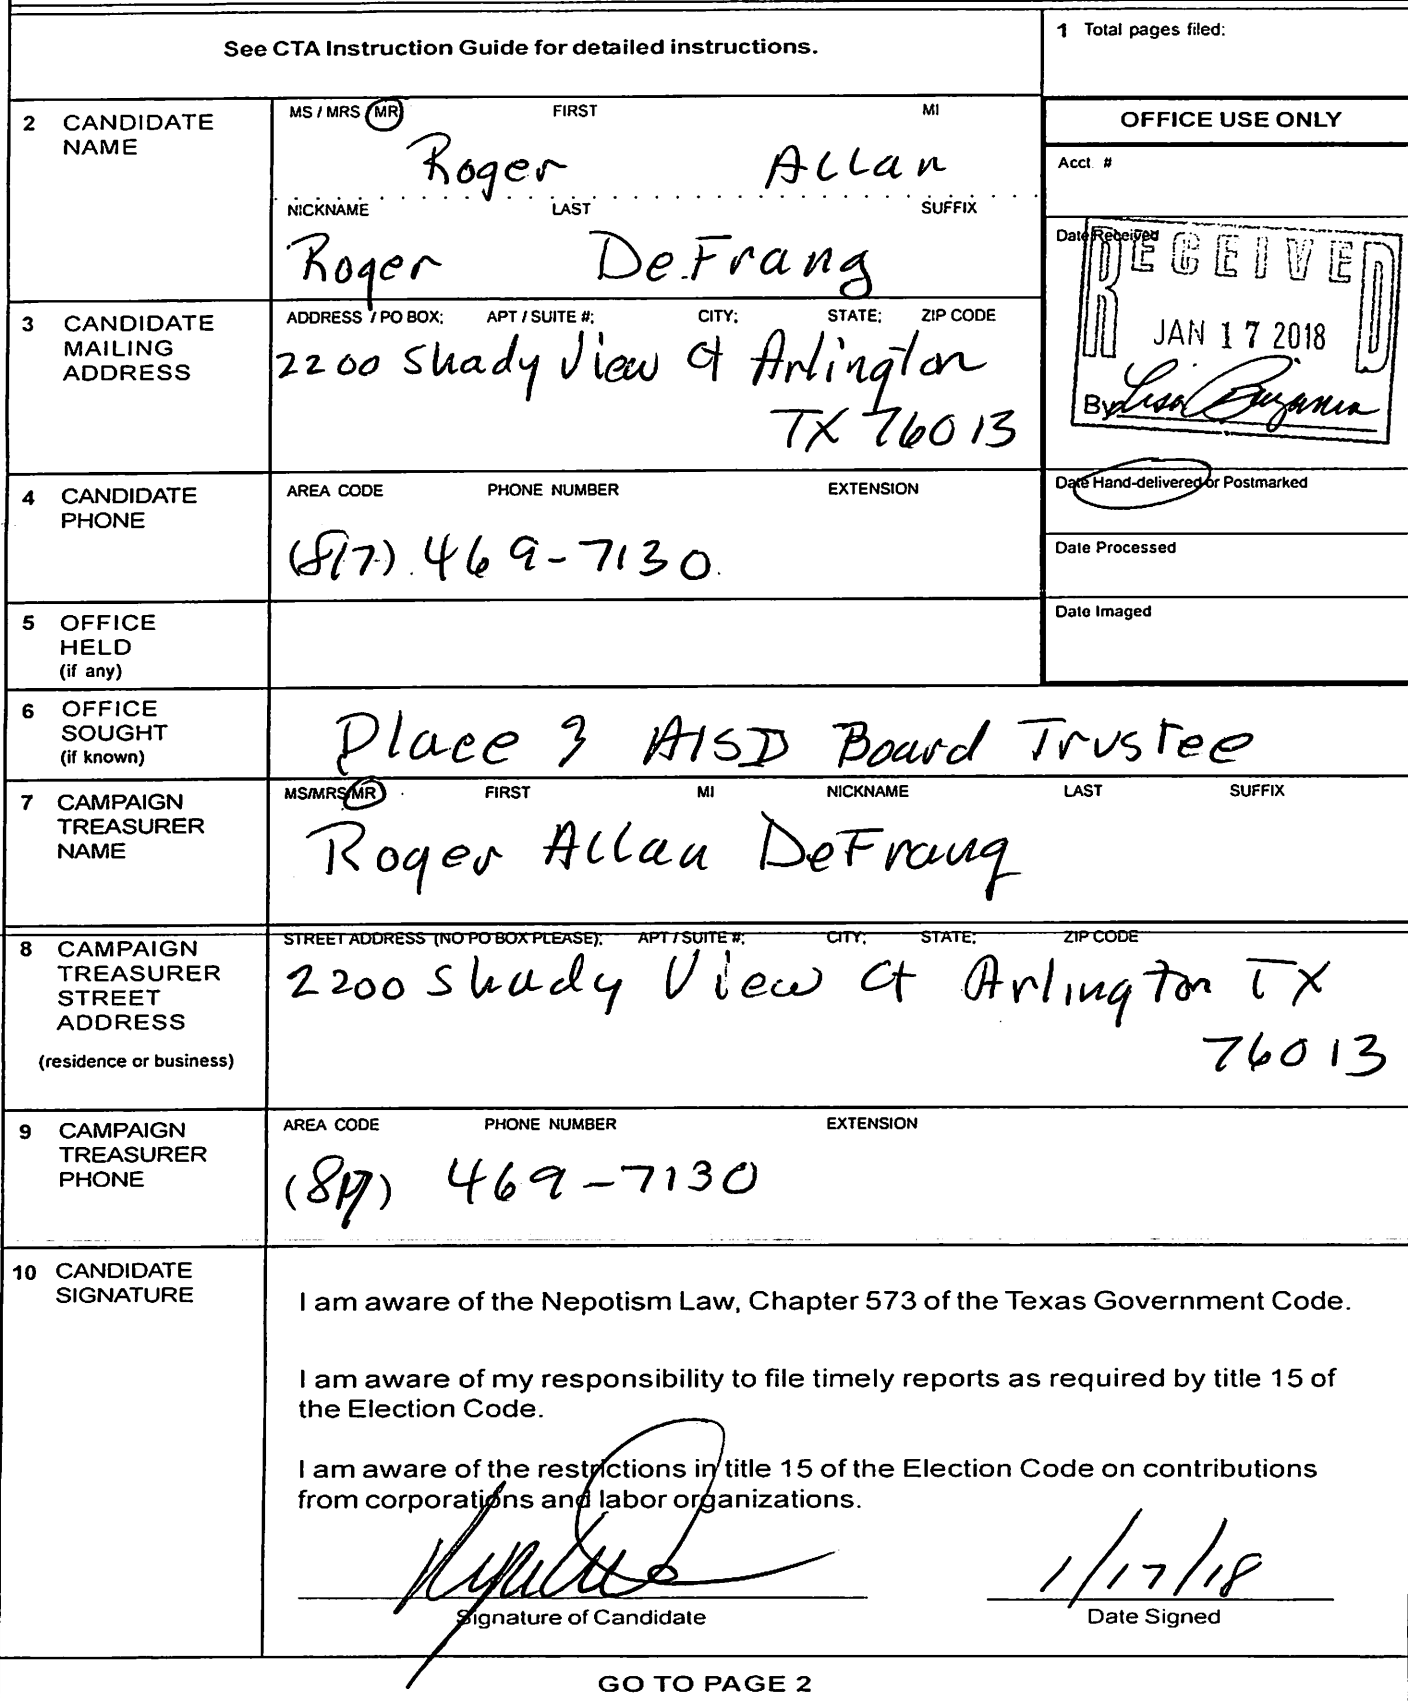 See CTA Instruction Guide for detailed instructions.
1 Total pages filed:
2 CANDIDATE NAME
MS / MRS / MR FIRST MI
Roger Allan
NICKNAME LAST SUFFIX
Roger DeFrang
OFFICE USE ONLY
Acct. #
Date Received
RECEIVED
JAN 17 2018
By Lisa Benjamin
3 CANDIDATE MAILING ADDRESS
ADDRESS / PO BOX; APT / SUITE #; CITY; STATE; ZIP CODE
2200 Shady View Ct Arlington
TX 76013
Date Hand-delivered or Postmarked
4 CANDIDATE PHONE
AREA CODE PHONE NUMBER EXTENSION
(817) 469-7130
Date Processed
5 OFFICE HELD (if any)
Date Imaged
6 OFFICE SOUGHT (if known)
Place 3 AISD Board Trustee
7 CAMPAIGN TREASURER NAME
MS/MRS/MR FIRST MI NICKNAME LAST SUFFIX
Roger Allan DeFrang
8 CAMPAIGN TREASURER STREET ADDRESS
(residence or business)
STREET ADDRESS (NO PO BOX PLEASE); APT / SUITE #; CITY; STATE; ZIP CODE
2200 Shady View Ct Arlington TX
76013
9 CAMPAIGN TREASURER PHONE
AREA CODE PHONE NUMBER EXTENSION
(817) 469-7130
10 CANDIDATE SIGNATURE
I am aware of the Nepotism Law, Chapter 573 of the Texas Government Code.
I am aware of my responsibility to file timely reports as required by title 15 of
the Election Code.
I am aware of the restrictions in title 15 of the Election Code on contributions
from corporations and labor organizations.
1/17/18
Signature of Candidate Date Signed
GO TO PAGE 2